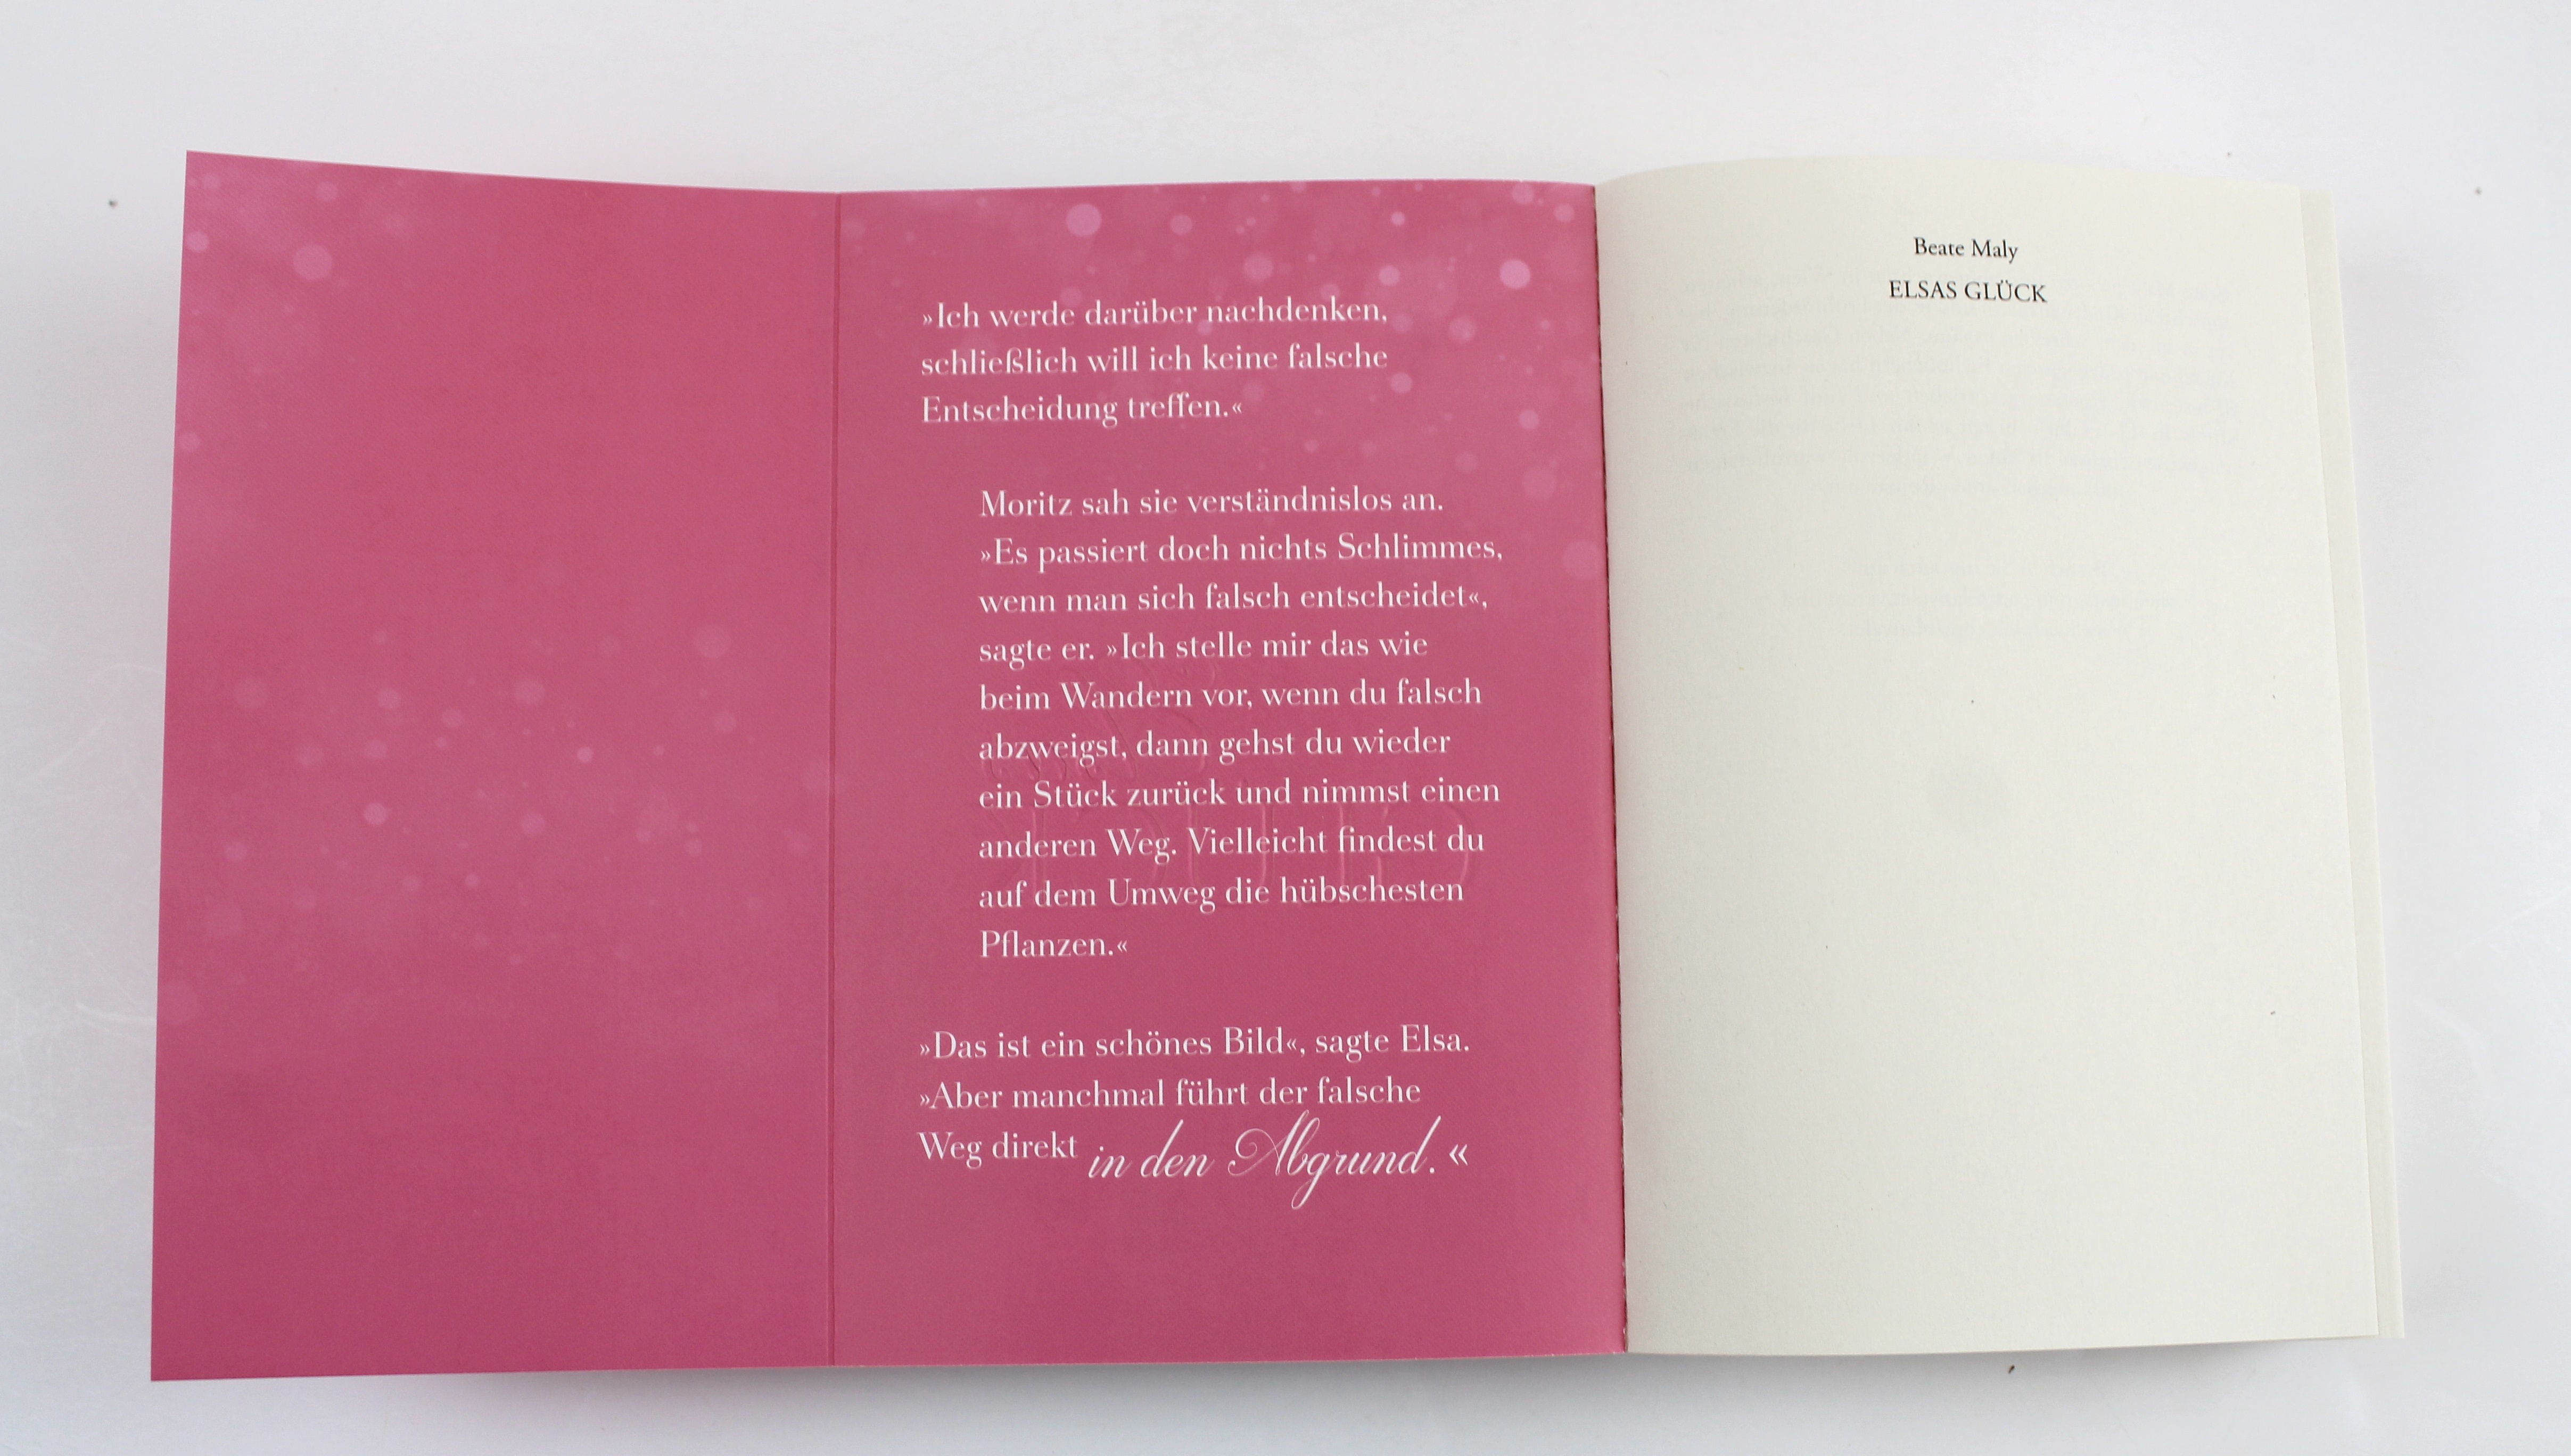 »Ich werde darüber nachdenken,
schließlich will ich keine falsche
Entscheidung treffen.«
Moritz sah sie verständnislos an.
»Es passiert doch nichts Schlimmes,
wenn man sich falsch entscheidet«,
sagte er. »Ich stelle mir das wie
beim Wandern vor, wenn du falsch
abzweigst, dann gehst du wieder
ein Stück zurück und nimmst einen
anderen Weg. Vielleicht findest du
auf dem Umweg die hübschesten
Pflanzen.«
»Das ist ein schönes Bild«, sagte Elsa.
»Aber manchmal führt der falsche
Weg direkt in den Abgrund.«
Beate Maly
ELSAS GLÜCK